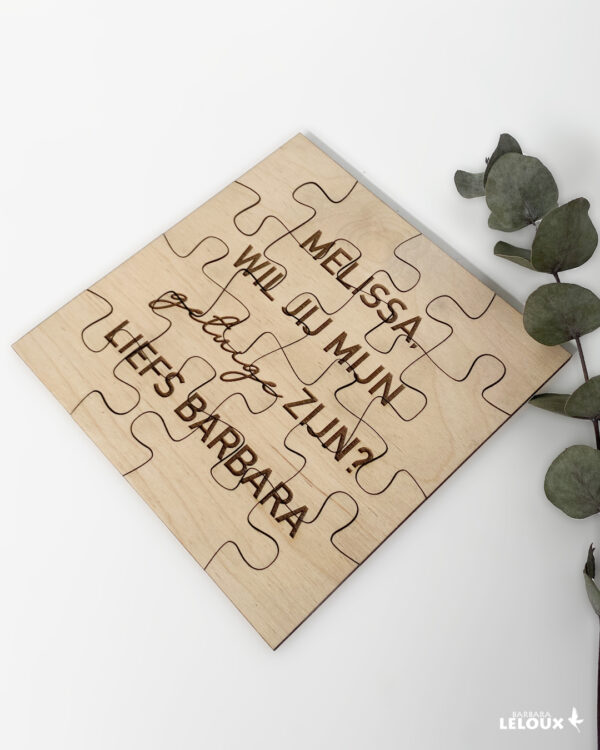 MELISSA,
WIL JIJ MIJN
getuige ZIJN?
LIEFS BARBARA
BARBARA
LELOUX